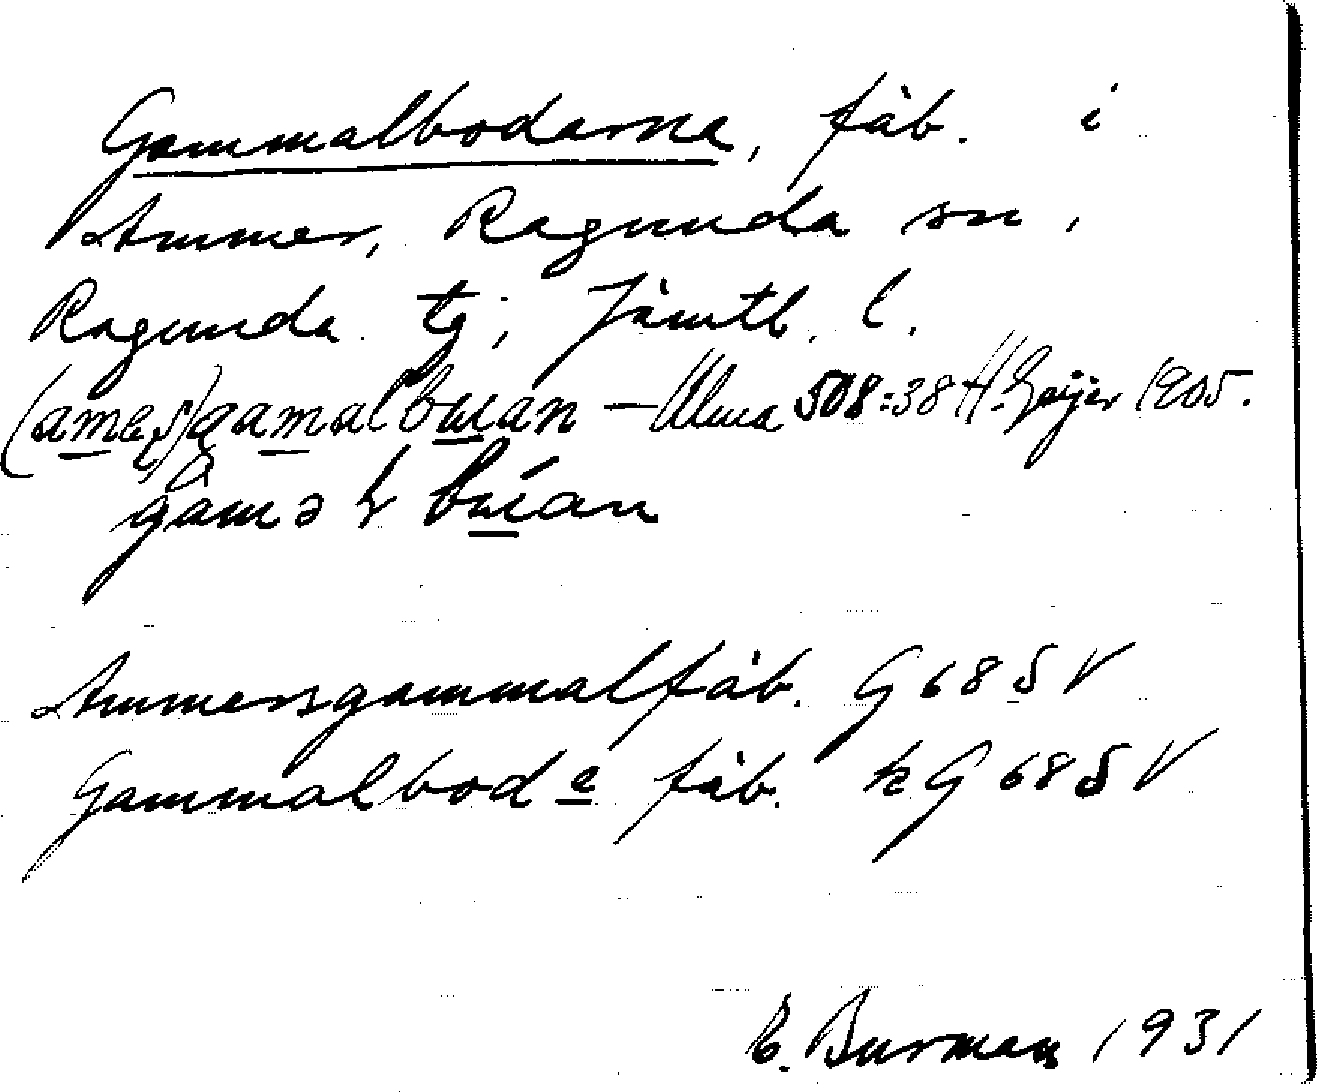 Gammalbodarna, fäb. i
Ammer, Ragunda sn,
Ragunda tg, Jämtl. l.
gamalbɯan – Ulma 508:38 H. Geijer 1905.
Ammersgammalfäb. G 68 SV
Gammalbodª fäb. k G 68 SV
E. Burman 1931